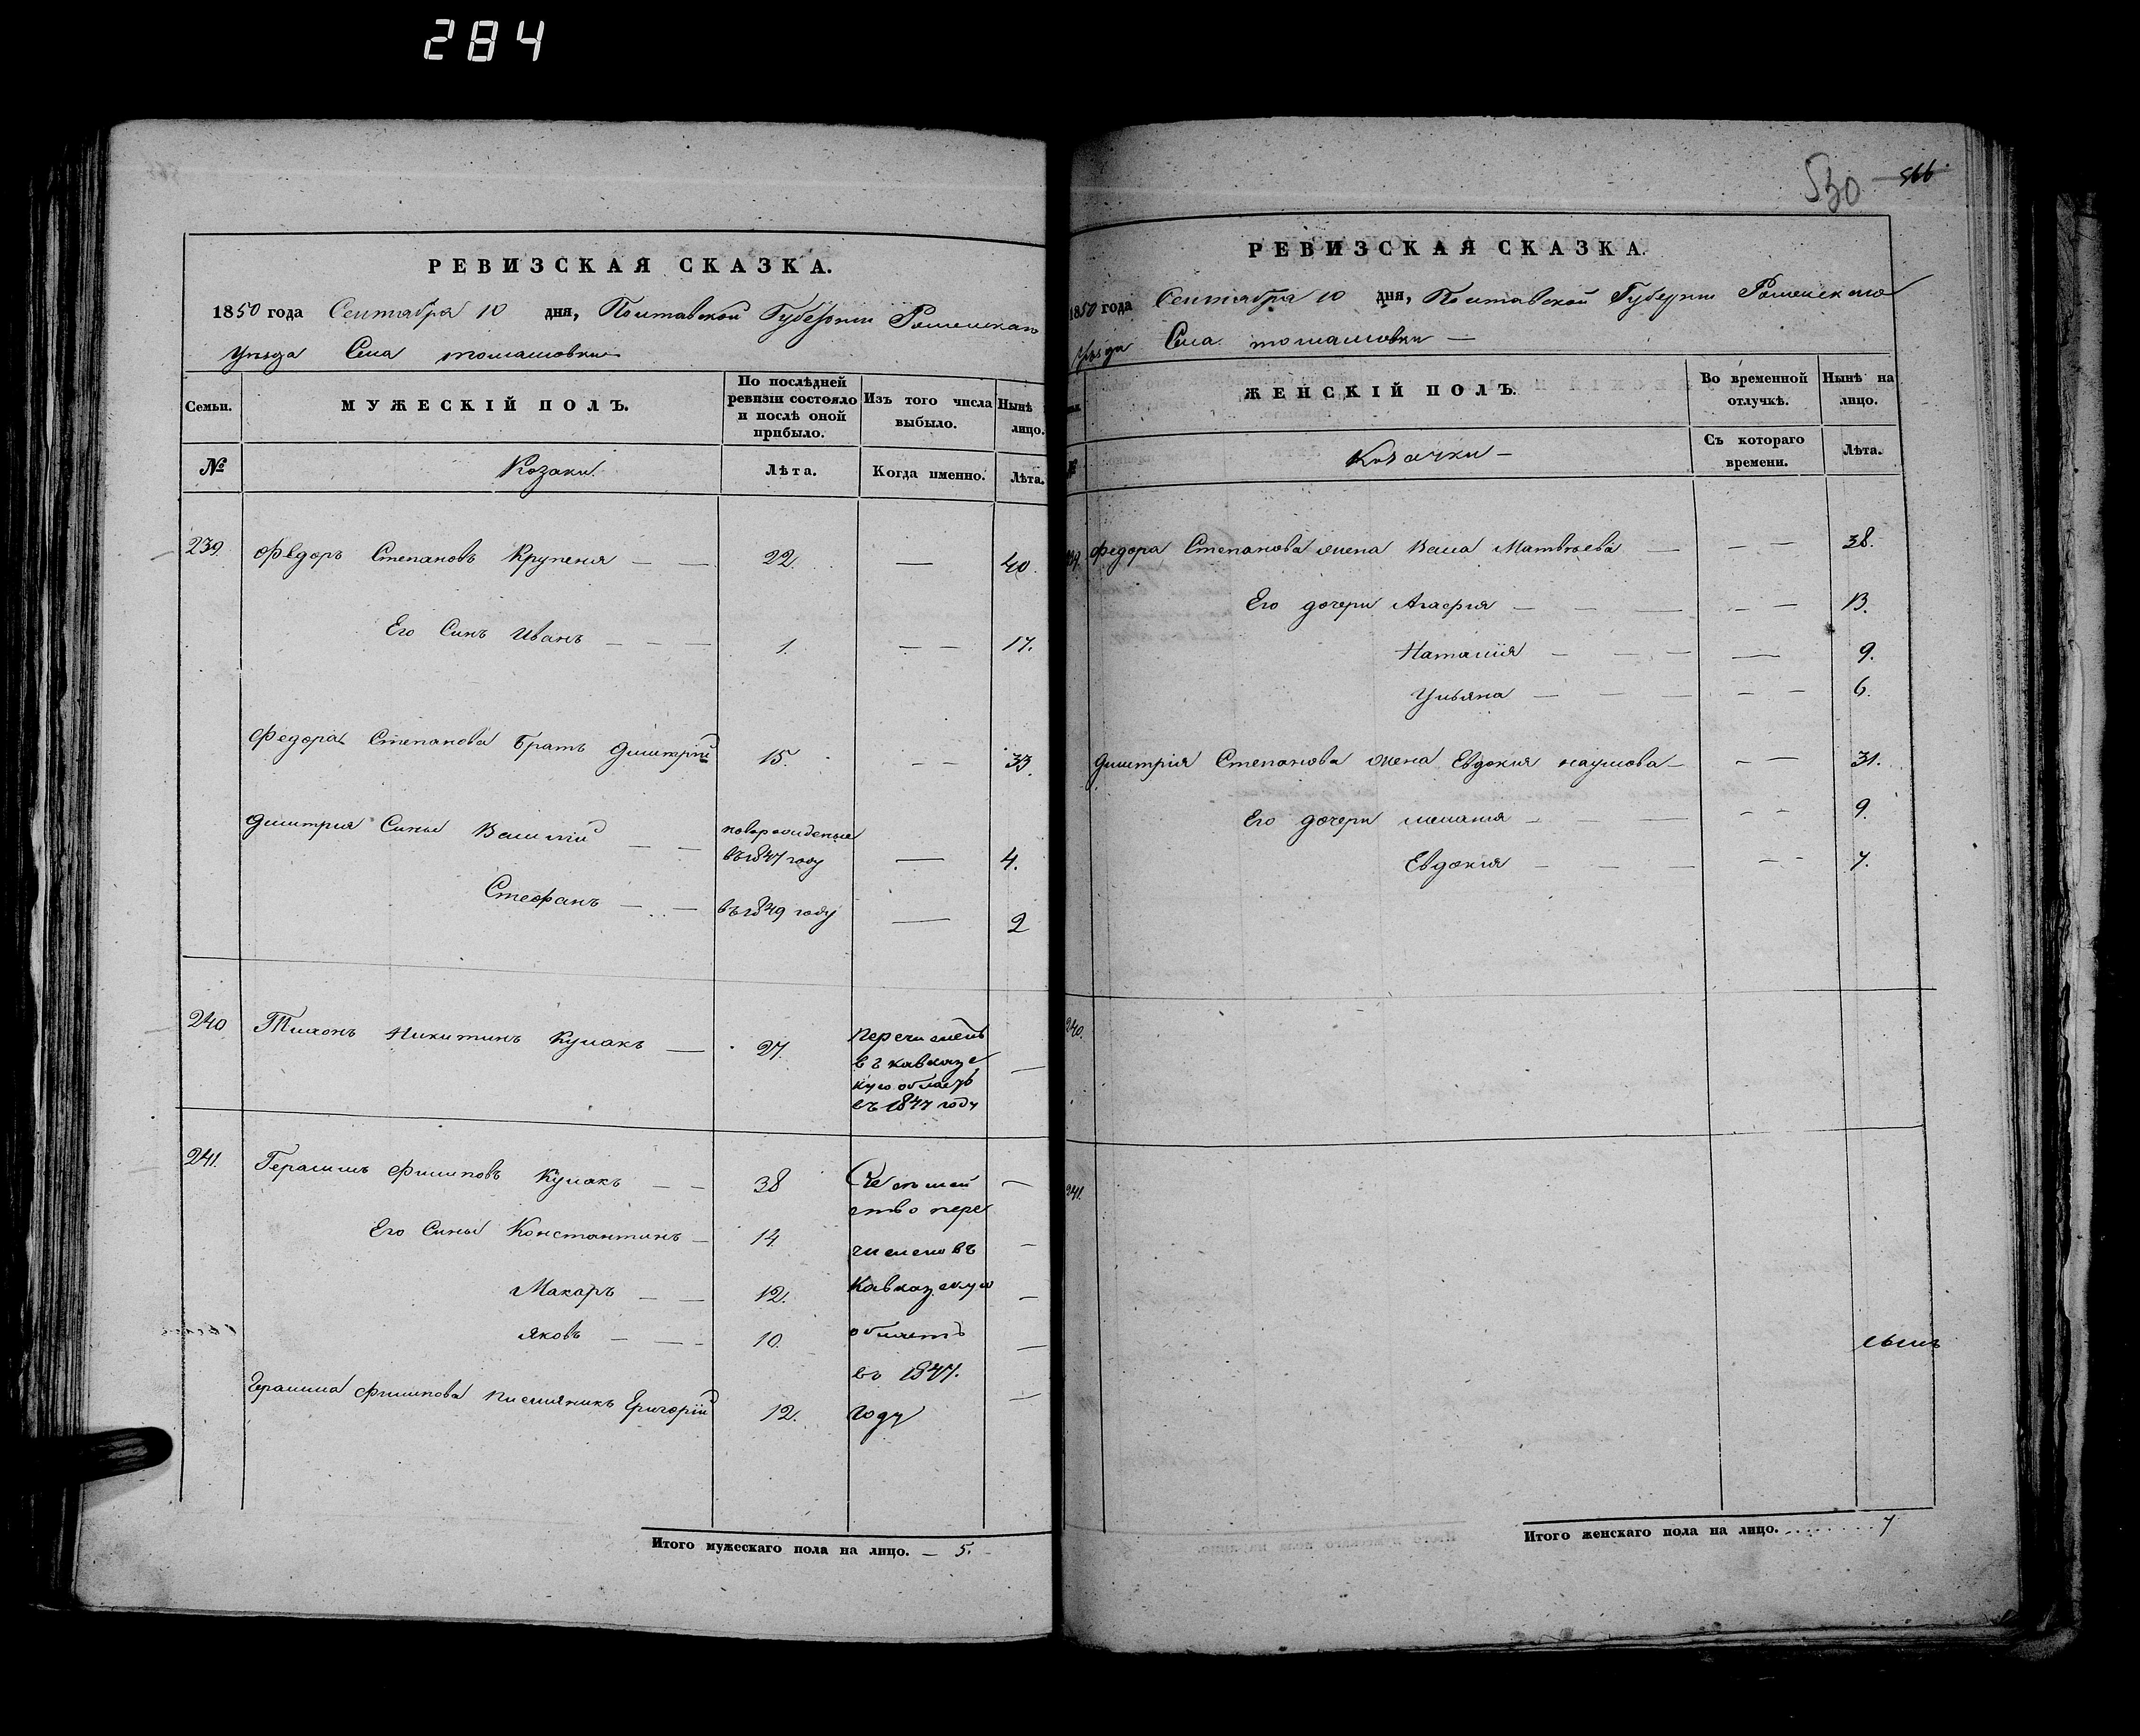 284
РЕВИЗСКАЯ СКАЗКА.
1850 года Сентября 10 дня, Полтавской Губернии Роменскаго
Уѣзда Села Томашовки
Семьи.
МУЖЕСКІЙ ПОЛЪ.
По послѣдней ревизіи состояло и послѣ оной прибыло.
Изъ того числа выбыло.
Нынѣ
лицо.
№
Козаки.
Лѣта.
Когда именно.
Лѣта.
239. Федоръ Степановъ Крупеня — — 22. — 40
Его Синъ Иванъ — — — 1. — — 17.
Федора Степанова Братъ Димитрій 15. — — 33.
Димитрия Сины Василій — — новорожденые
въ 1847 году — 4.
Стефанъ — — въ 1849 году — 2
240 Тихонъ Никитинъ Кулакъ — 27. Перечисленъ
въ Кавказс
кую область
въ 1847 году —
241. Герасимъ Филиповъ Кулакъ — — 38 Съ семей —
ство пере
Его Сины Константинъ — 14. численовъ —
Макаръ — — 12. Кавказскую —
Яковъ — — — 10. область —
въ 1847.
Герасима Филипова племяникъ Григорій 12. году —
Итого мужескаго пола на лицо. — 5.
530 566
РЕВИЗСКАЯ СКАЗКА.
1850 года Сентября 10 дня, Полтавской Губерніи Роменскаго
Уѣзда Села Томашовки —
ЖЕНСКІЙ ПОЛЪ.
Во временной отлучкѣ.
Нынѣ на лицо.
№
Козачки —
Съ котораго времени.
Лѣта.
239. Федора Степанова жена Васа Матвѣева — — — 38.
Его дочери Агафия — — — — — 13.
Наталия — — — — 9.
Ульяна — — — — — 6.
Димитрия Степанова жена Евдокия Наумова — — — 31.
Его дочери Мелания — — — — — 9.
Евдокия — — — — — 7.
240.
241.
Итого женскаго пола на лицо. . . . . . . . . 7